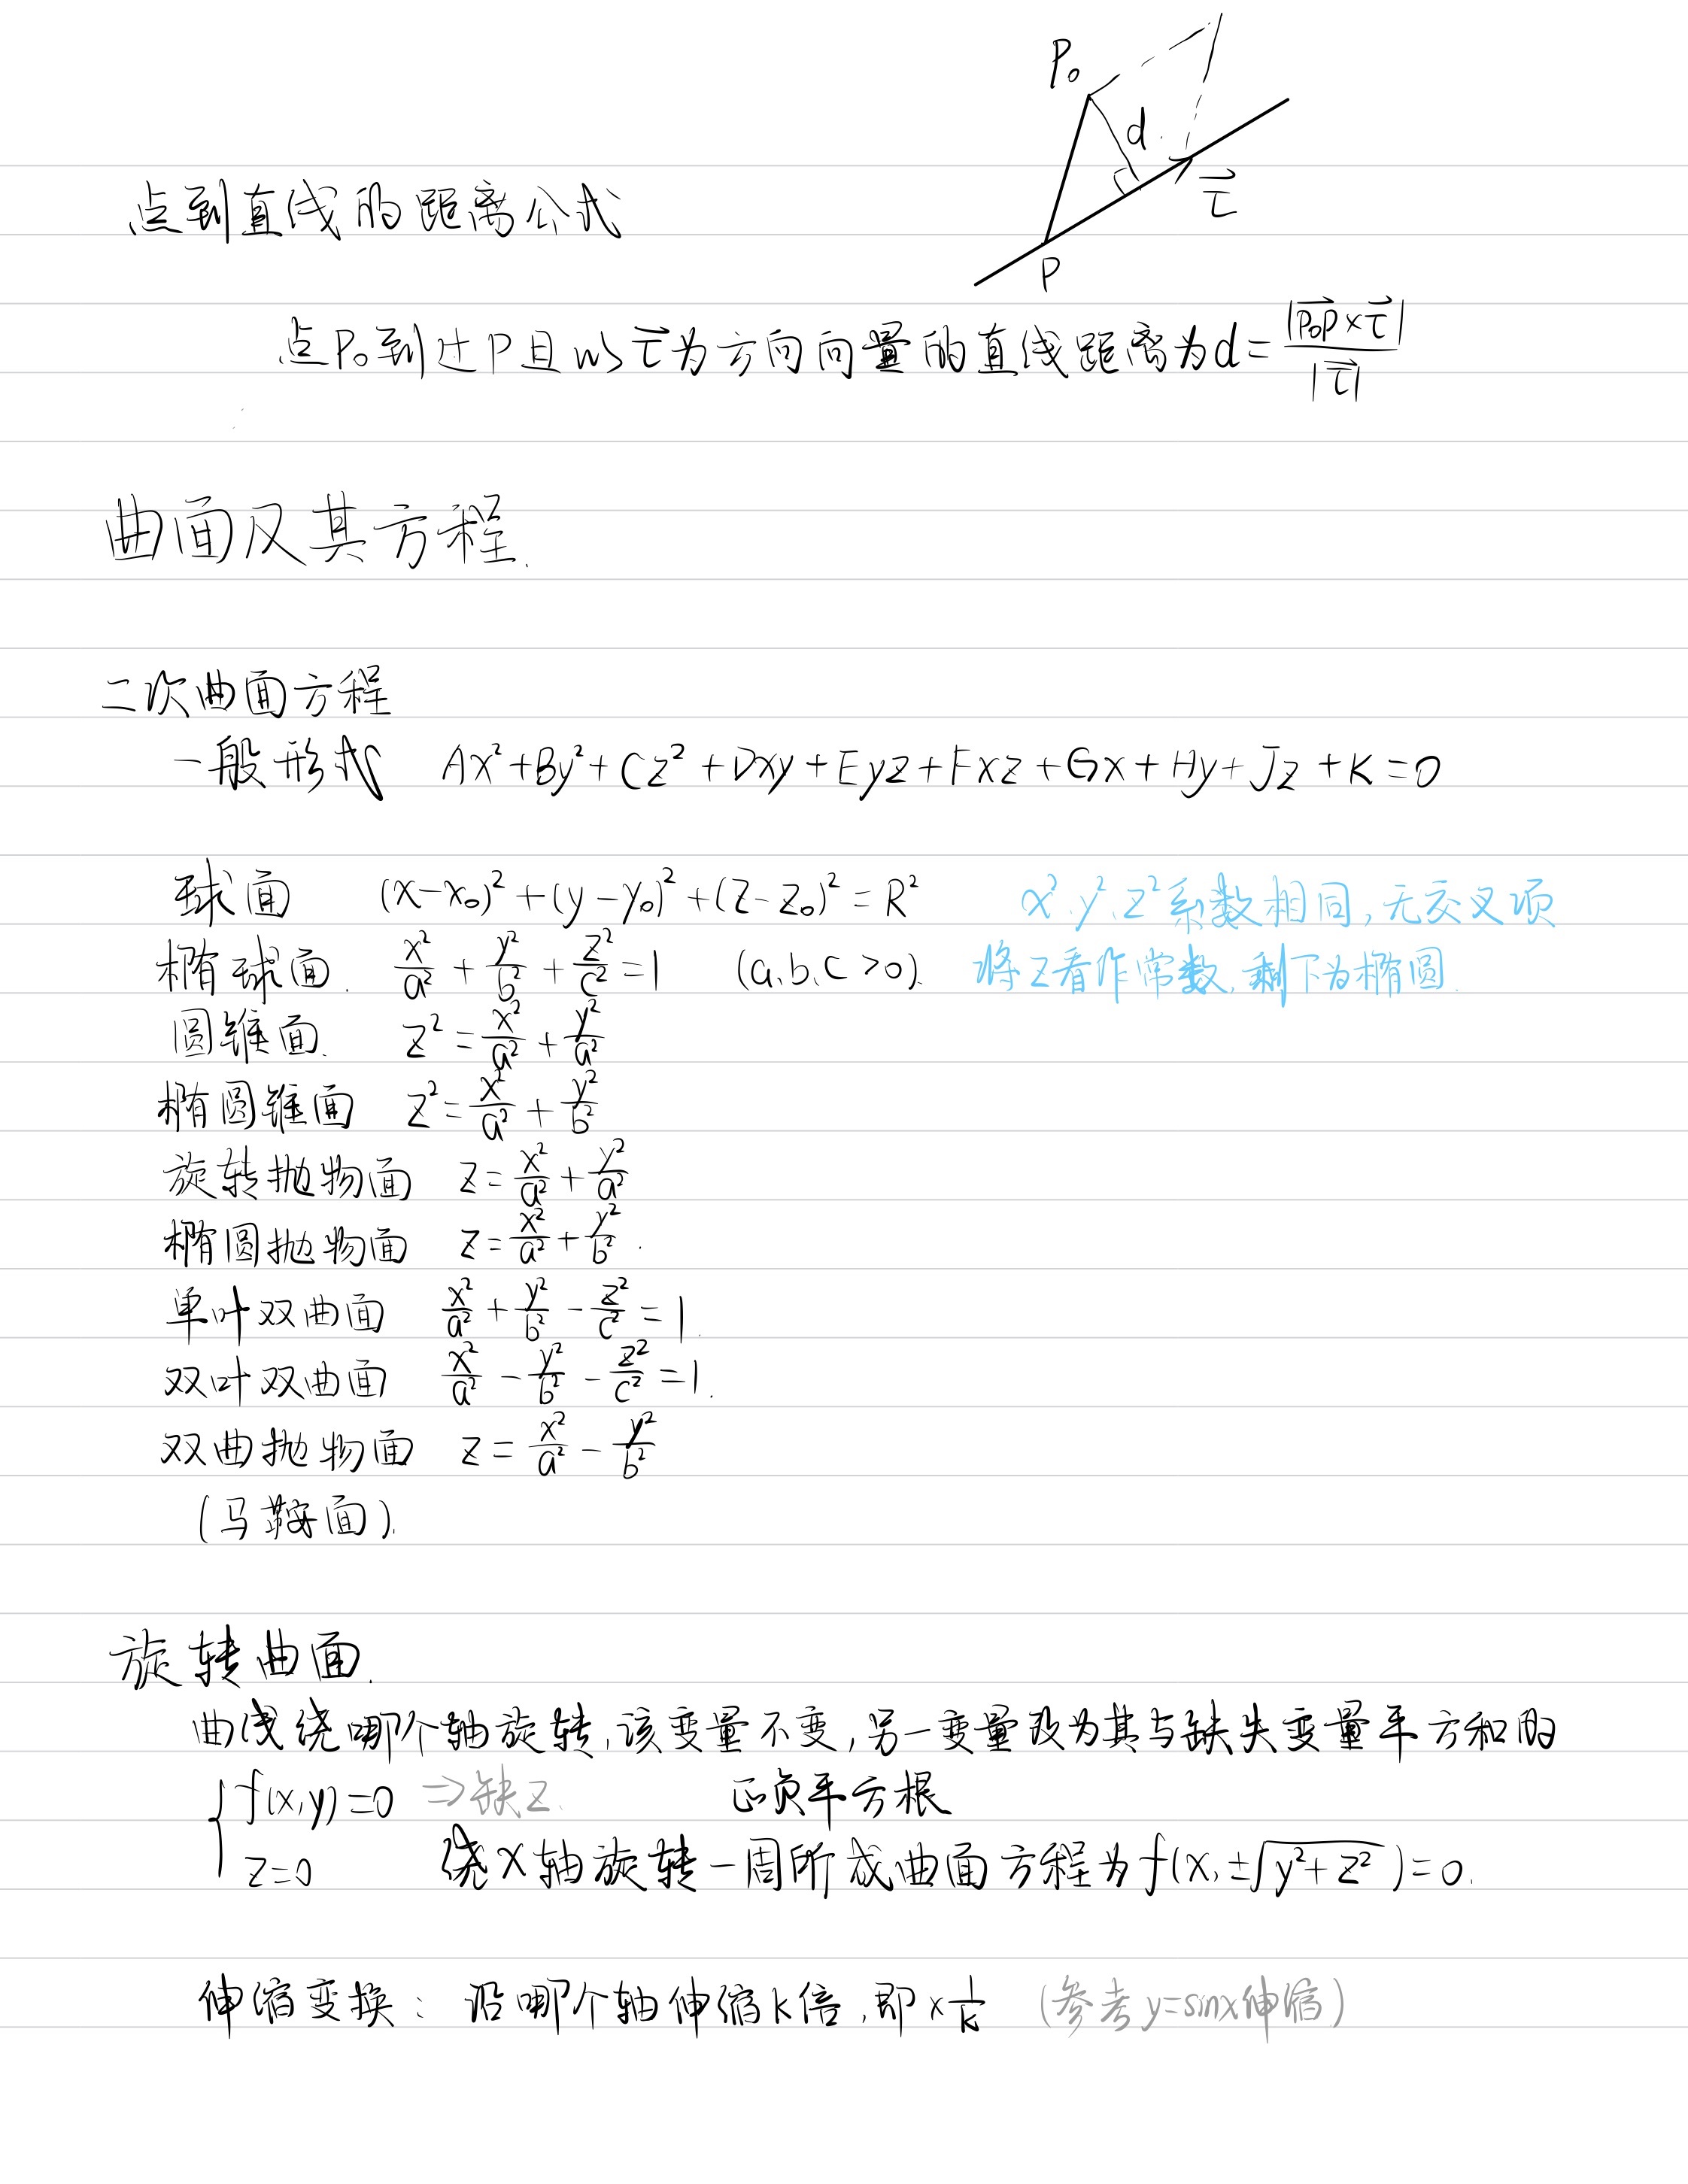 P₀
d
τ⃗
P
点到直线的距离公式
点P₀到过P且以τ⃗为方向向量的直线距离为d=|P₀P⃗×τ⃗|/|τ⃗|
曲面及其方程.
二次曲面方程
一般形式 Ax²+By²+Cz²+Dxy+Eyz+Fxz+Gx+Hy+Jz+K=0
球面 (x-x₀)²+(y-y₀)²+(z-z₀)²=R² x²、y²、z²系数相同,无交叉项
椭球面. x²/a²+y²/b²+z²/c²=1 (a、b、c>0). 将z看作常数,剩下为椭圆.
圆锥面. z²=x²/a²+y²/a²
椭圆锥面 z²=x²/a²+y²/b²
旋转抛物面 z=x²/a²+y²/a²
椭圆抛物面 z=x²/a²+y²/b².
单叶双曲面 x²/a²+y²/b²-z²/c²=1.
双叶双曲面 x²/a²-y²/b²-z²/c²=1.
双曲抛物面 z=x²/a²-y²/b²
(马鞍面).
旋转曲面.
曲线绕哪个轴旋转,该变量不变,另一变量改为其与缺失变量平方和的
{f(x,y)=0 ⇒缺z. 正负平方根
z=0 绕x轴旋转一周所成曲面方程为f(x,±√(y²+z²))=0.
伸缩变换: 沿哪个轴伸缩k倍,即×1/k (参考y=sinx伸缩)